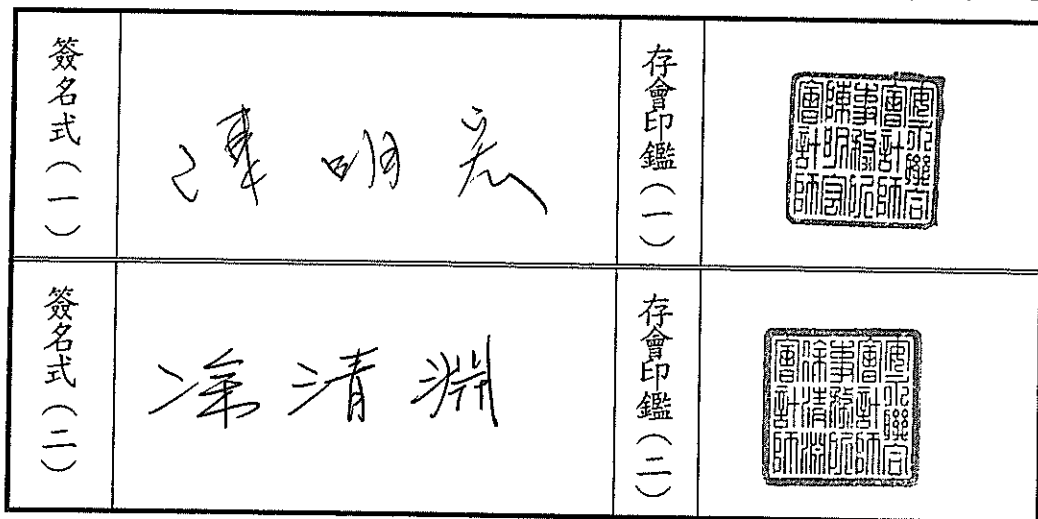 簽名式（一）
陳明宏
存會印鑑（一）
安永聯合
會計師
事務所
陳明宏
會計師
簽名式（二）
涂清淵
存會印鑑（二）
安永聯合
會計師
事務所
涂清淵
會計師